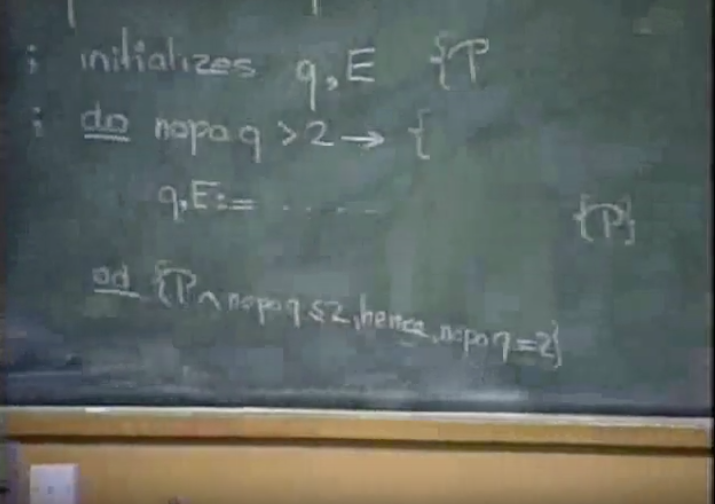 ; initializes q,E {P
; do nopo q > 2 → {
q,E:= ......
{P}
od {P ∧ nopo q ≤ 2, hence, nopo q = 2}